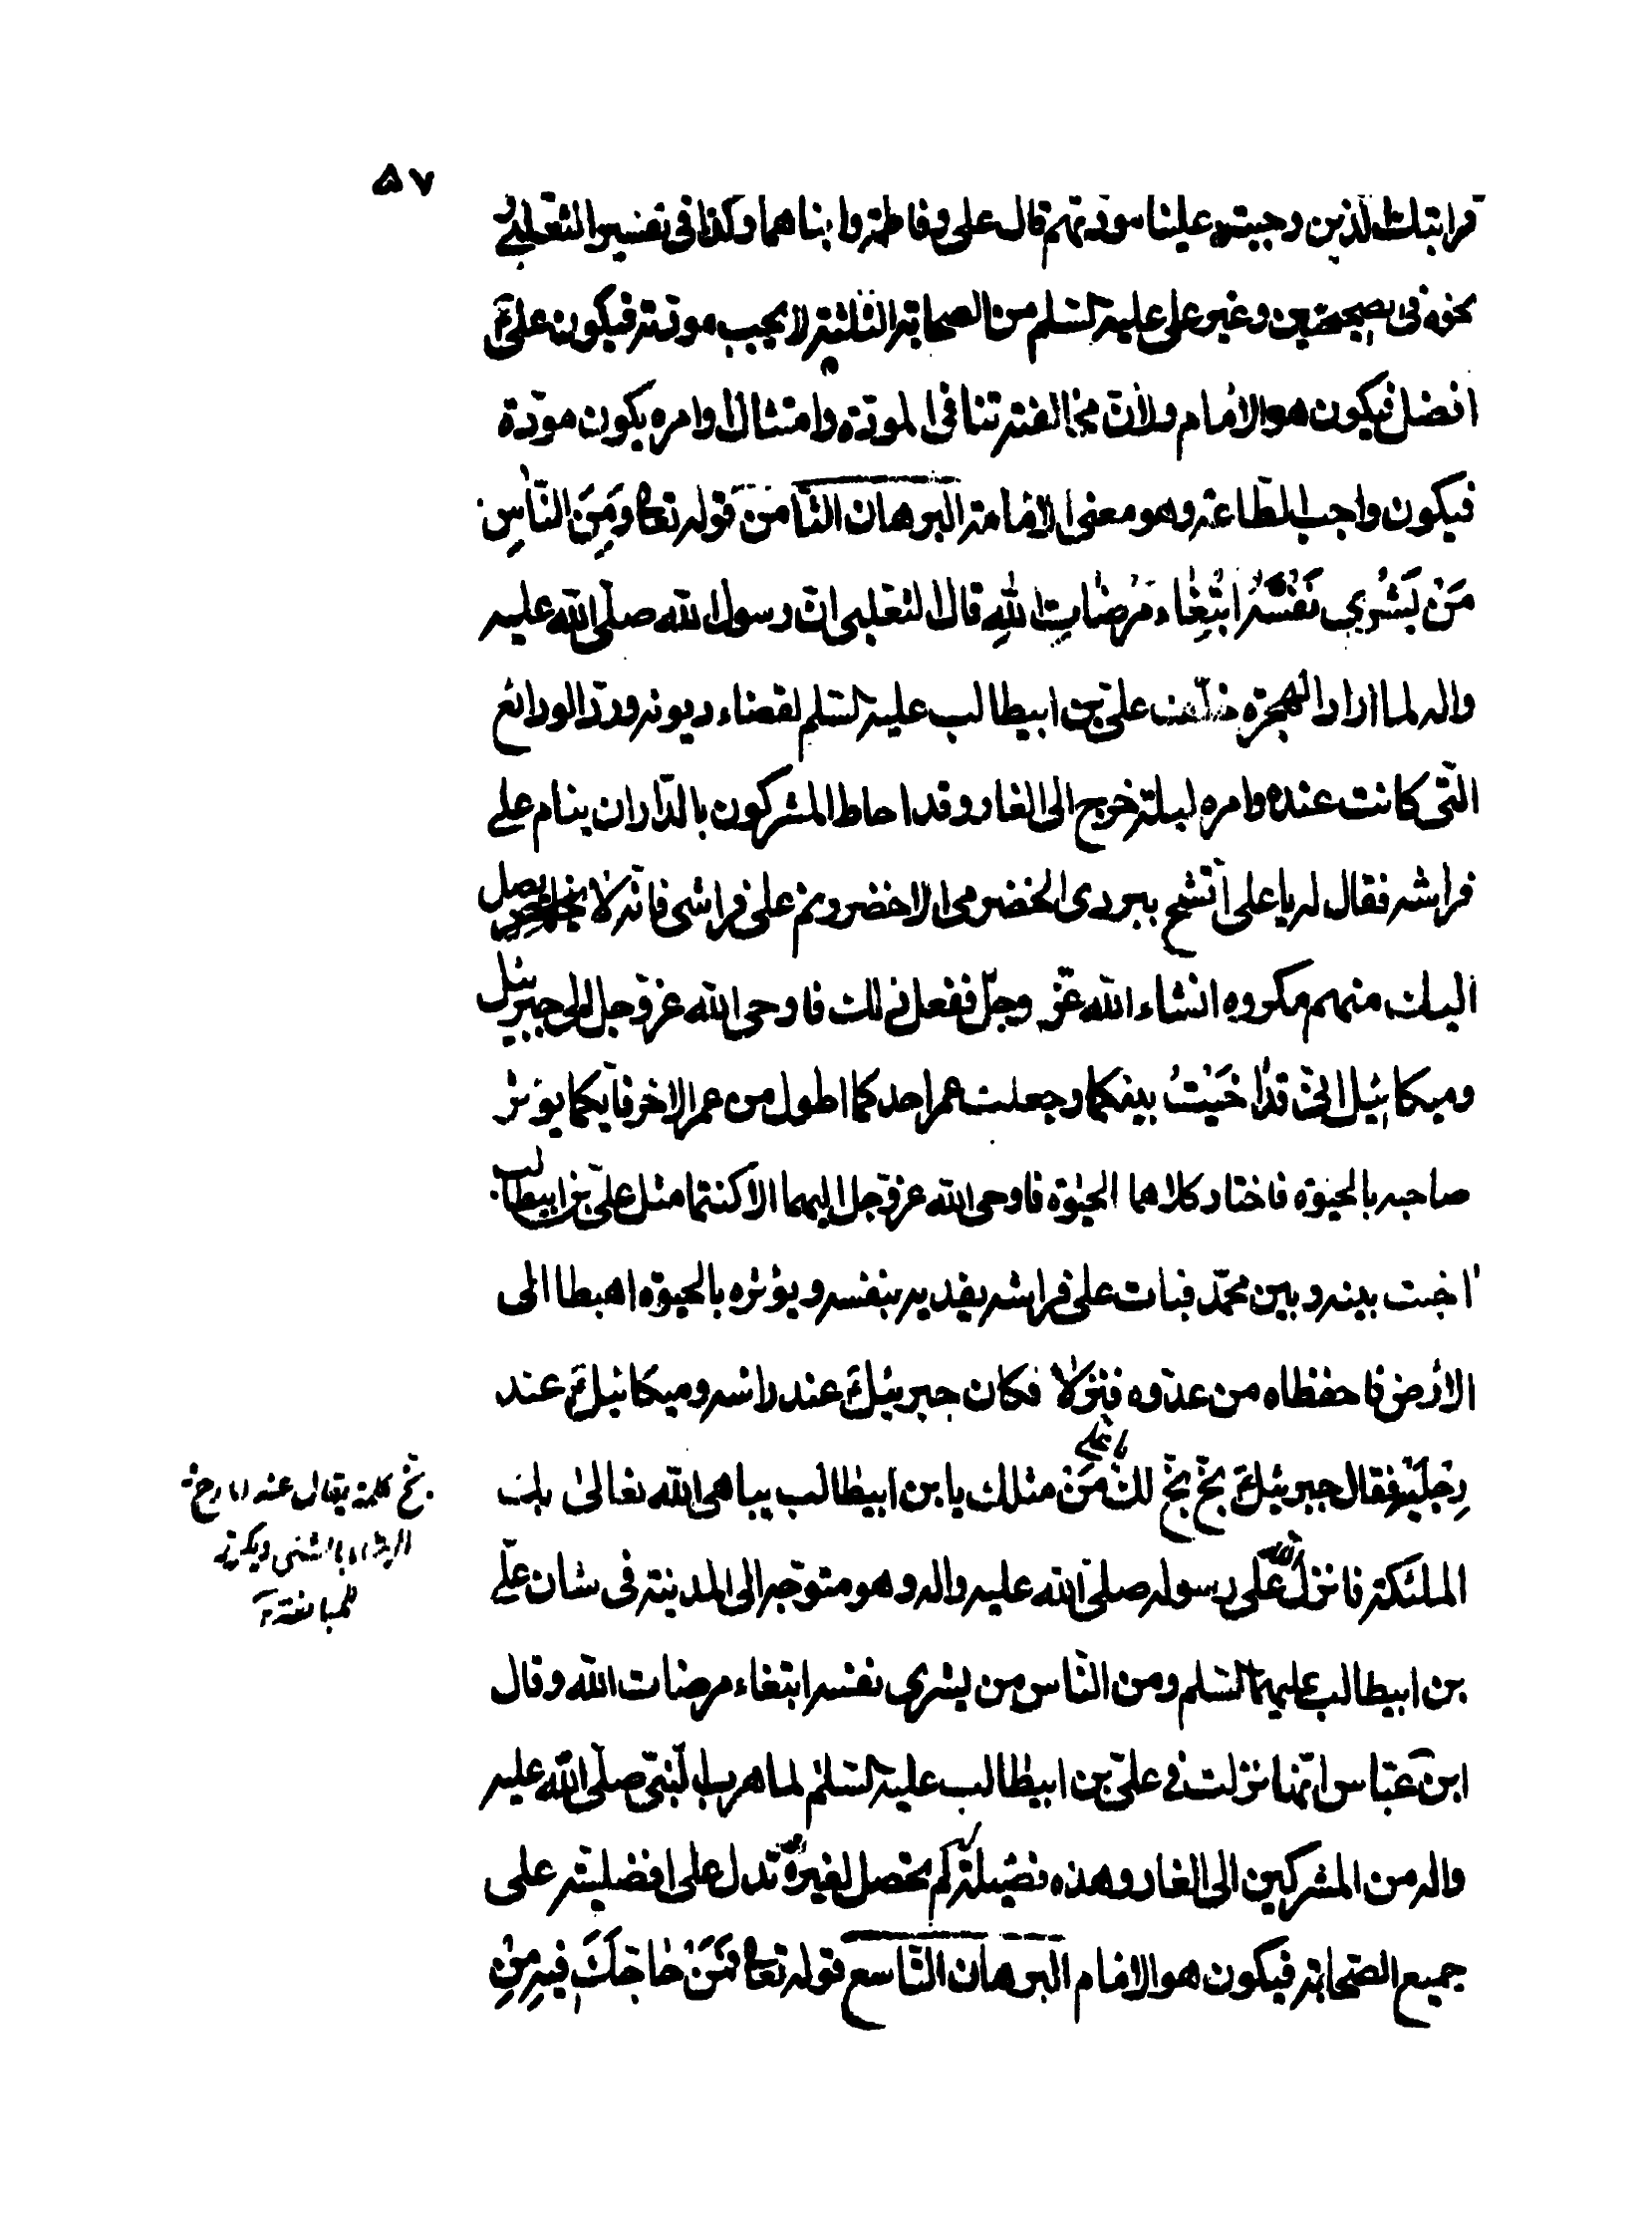 ۵۷
قرابتك الذين وجبت علينا مودتهم قال على وفاطمة وابناهما وكذا فى تفسير الثعلبى
نحوه فى الصحيحين وغير على عليه السلم من الصحابة الثلثة لا يجب مودته فيكون علىّ
افضل فيكون هو الامام ولانّ مخالفته تنافى المودّة وامتثال اوامره يكون مودّة
فيكون واجب الطاعة وهو معنى الامامة البرهان الثامن قوله تعا وَمِنَ النّاسِ
مَنْ يَشْرِي نَفْسَهُ ابْتِغاءَ مَرْضاتِ اللهِ قال الثعلبى انّ رسول الله صلّى الله عليه
واله لما اراد الهجرة خلّف علىّ بن ابيطالب عليه السلم لقضاء ديونه وردّ الودائع
التى كانت عنده وامره ليلة خرج الى الغار وقد احاط المشركون بالدّار ان ينام على
فراشه فقال له يا على اتّشح ببردى الحضرمى الاخضر ونم على فراشى فانّه لا يصل
اليك منهم مكروه انشاء الله عزّ وجلّ ففعل ذلك فاوحى الله عزوجل الى جبرئيل
وميكائيل انّى قد اخَيْتُ بينكما وجعلت عمر احدكما اطول من عمر الاخر فايّكما يؤثر
صاحبه بالحيوة فاختار كلاهما الحيوة فاوحى الله عزوجل اليهما الا كنتما مثل علىّ بن ابيطالب
اخيت بينه وبين محمّد فبات على فراشه يفديه بنفسه ويؤثره بالحيوة اهبطا الى
الارض فاحفظاه من عدوّه فنزلا فكان جبرئيلؑ عند راسه وميكائيلؑ عند
رِجْلَيْهِ فقال جبرئيلؑ بخّ بخّ لك يا على مَنْ مثلك يا بن ابيطالب يباهى الله تعالى بك
الملئكة فانزل الله على رسوله صلّى الله عليه واله وهو متوجّه الى المدينة فى شان علىّ
بن ابيطالب عليهما السلم ومن النّاس من يشرى نفسه ابتغاء مرضات الله وقال
ابن عبّاس انّها نزلت فى علىّ بن ابيطالب عليه السلم لما هرب النّبىّ صلّى الله عليه
واله من المشركين الى الغار وهذه فضيلة لم تحصل لغيره تدل على افضليته على
جميع الصّحابة فيكون هو الامام البرهان التّاسع قوله تعا فَمَنْ حاجَّكَ فيهِ مِنْ
بخّ كلمة يقال عند المدح
والرضاء بالشئ ويكرّر
للمبالغة